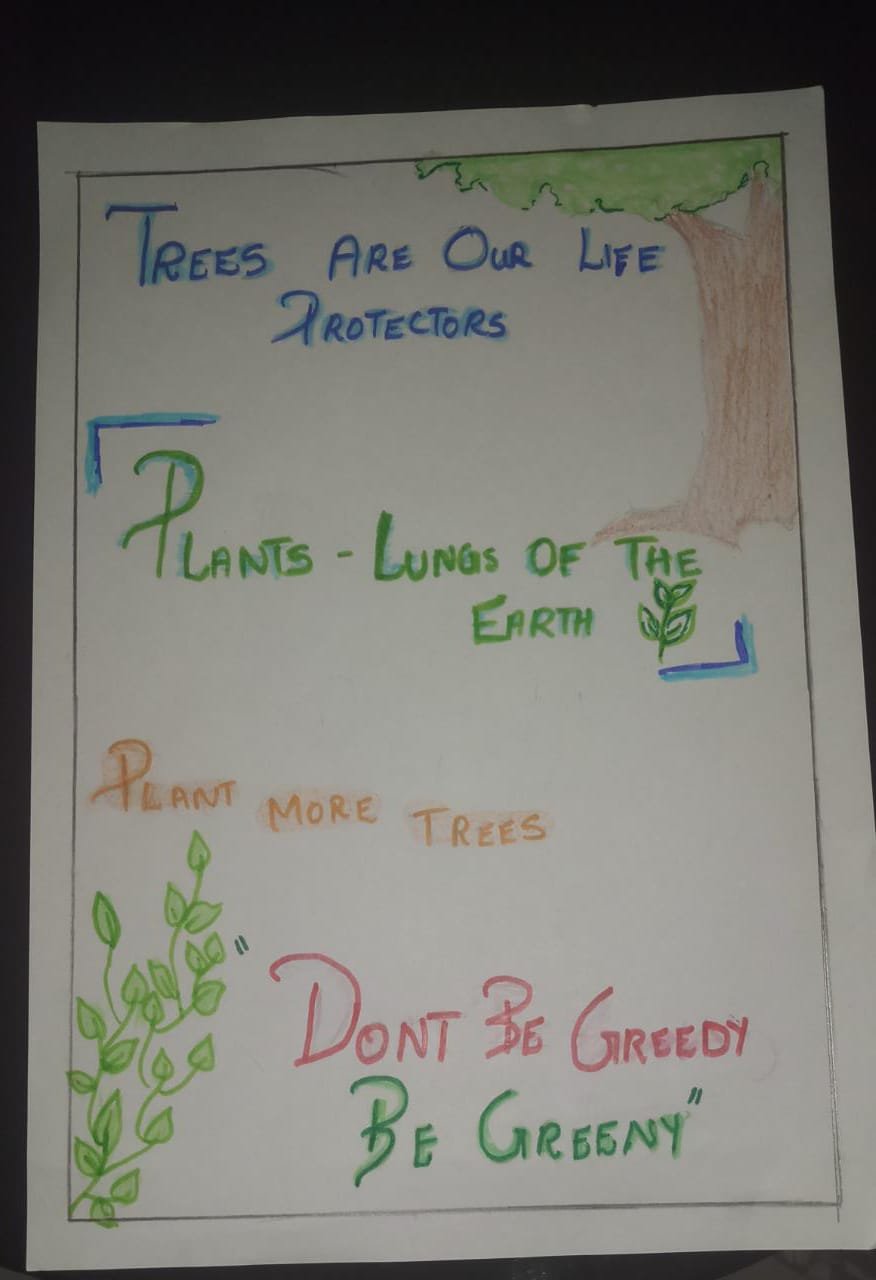 TREES ARE OUR LIFE
PROTECTORS
PLANTS - LUNGS OF THE
EARTH
PLANT MORE TREES
"DONT BE GREEDY
BE GREENY"